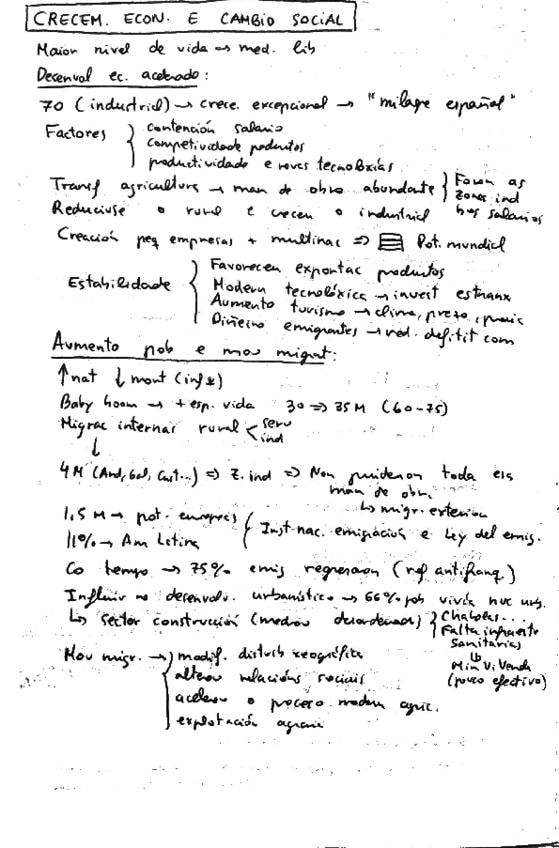 CRECEM. ECON. E CAMBIO SOCIAL
Maior nivel de vida → med. lib
Desenvol ec. acelerado:
70 (industrial) → crece. excepcional → "milagre español"
Factores } contención salario
competividade produtos
productividade e novas tecnoloxías
Transf agricultura → man de obra abundante } Foron as
zonas ind
bos salarios
Reducíuse o rural e crecen o industrial
Creación peq empresas + multinac ⇒ Pot. mundial
Estabilidade } Favorecen exportac produtos
Modern tecnolóxica → invest estranx
Aumento turismo → clima, prezo, praia
Diñeiro emigrantes → red. defitit com
Aumento pob e mov migrat:
↑ nat ↓ mort (inf)
Baby boom → + esp. vida 30 ⇒ 35 M (60-75)
Migrac internas rural < serv
ind
↓
4 M (And, Gal, Cast...) ⇒ Z. ind ⇒ Non puideron toda esa
man de obra
↳ migr. exterior
1,5 M → pot. europeas
11% → Am Latina
{ Inst nac. emigración e Ley del emig.
Co tempo → 75% emig regresaron (ref antifranq.)
Influiu no desenvolv. urbanístico → 66% pob vivía nuc urb.
↳ sector construcción (medrou desordenado) } Chabolas...
Falta infraestr
sanitarias
⇓
Min Vivenda
(pouco efectivo)
Mov migr. → } modif. distrib xeográfica
alterou relacións sociais
acelerou o proceso modern agric.
explotación agraria